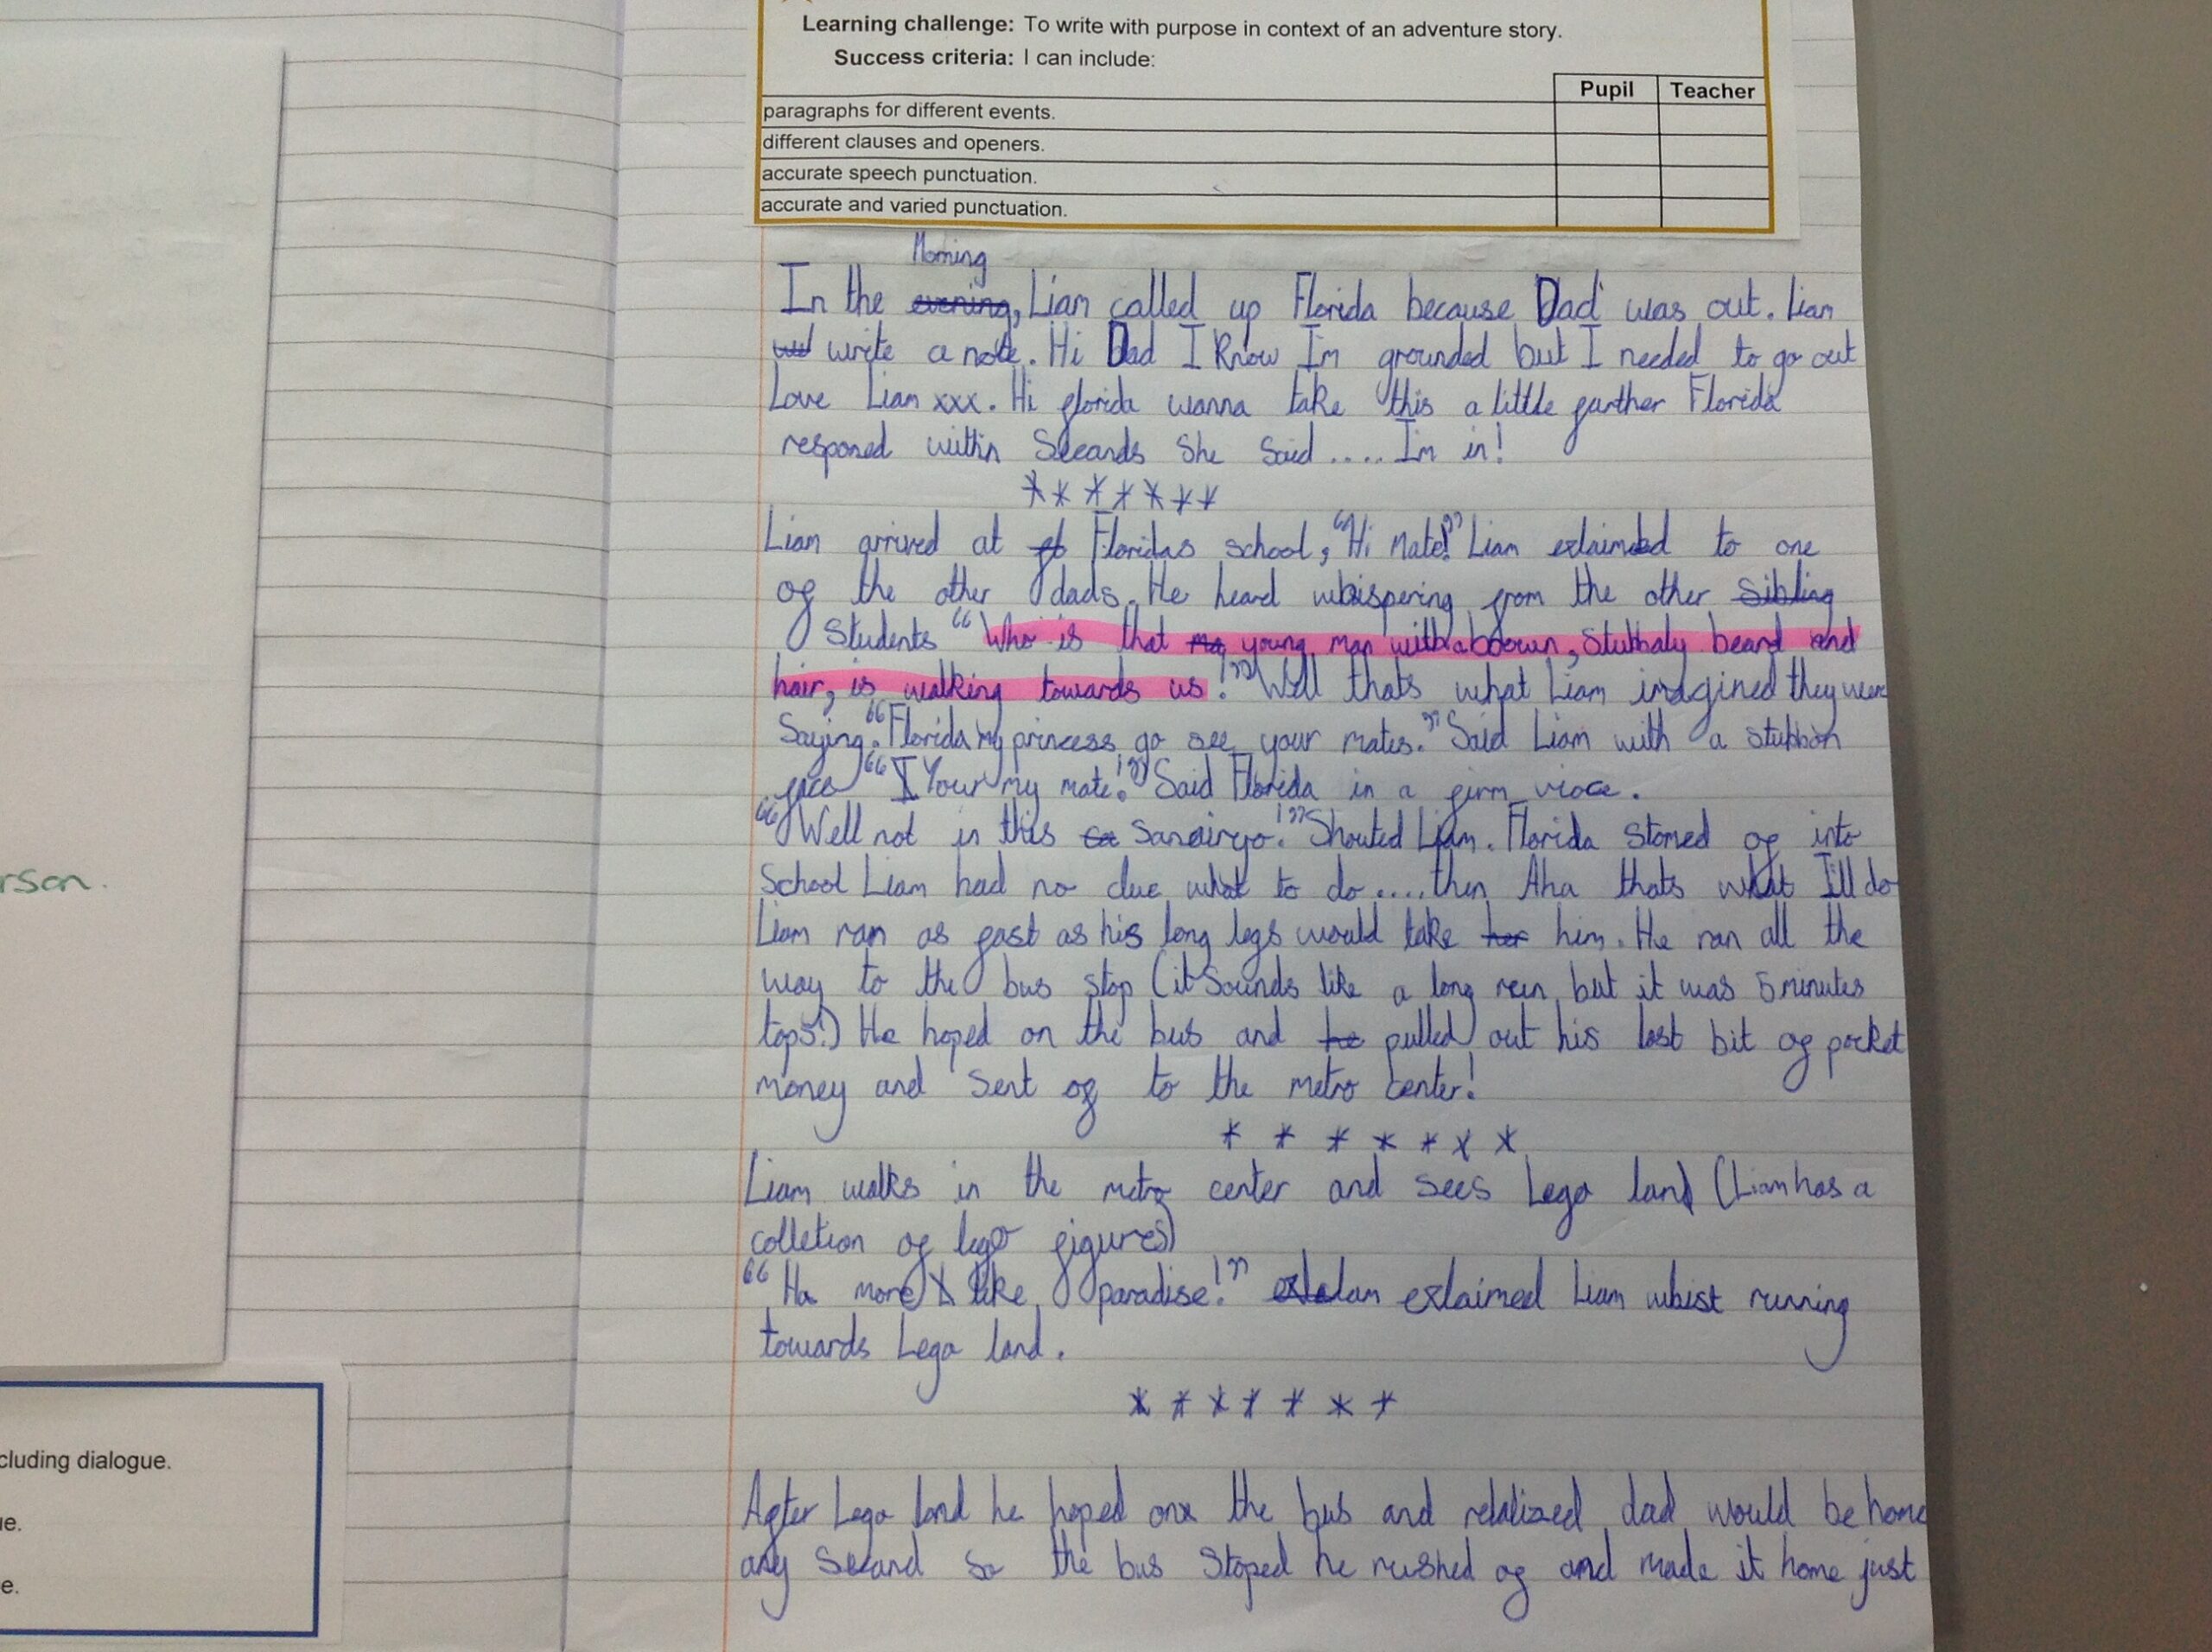 Learning challenge: To write with purpose in context of an adventure story.
Success criteria: I can include:
Pupil Teacher
paragraphs for different events.
different clauses and openers.
accurate speech punctuation.
accurate and varied punctuation.
Morning
In the evening, Liam called up Florida because Dad was out. Liam
write a note. Hi Dad I Know Im grounded but I needed to go out
Love Liam xxx. Hi florida wanna take this a little further Florida
responed within Seconds She Said ..... Im in!
*******
Liam arrived at Floridas school, "Hi Mate!" Liam exlaimed to one
of the other dads. He heard whispering from the other sibling
Students "Who is that young man with a brown, Stubbaly beard and
hair, is walking towards us!?" Well thats what Liam imagined they were
Saying. "Florida my princess go see your mates." Said Liam with a stubbon
face "I Your my mate!" Said Florida in a firm vioce.
"Well not in this !" Shouted Liam. Florida Stomed of into
School Liam had no clue what to do....then Aha thats what Ill do
Liam ran as fast as his long legs would take her him. He ran all the
way to the bus stop (it Sounds like a long run but it was 5 minutes
tops!) He hoped on the bus and he pulled out his last bit of pocket
money and sent of to the metro center!
* * * * * * *
Liam walks in the metro center and sees Lego land (Liam has a
colletion of lego figures)
"Ha more like paradise!" exlaimed Liam whist running
towards Lego land.
* * * * * * *
After Lego land he hoped on the bus and relalized dad would be home
any second so the bus Stoped he rushed of and made it home just
rson.
cluding dialogue.
ue.
e.